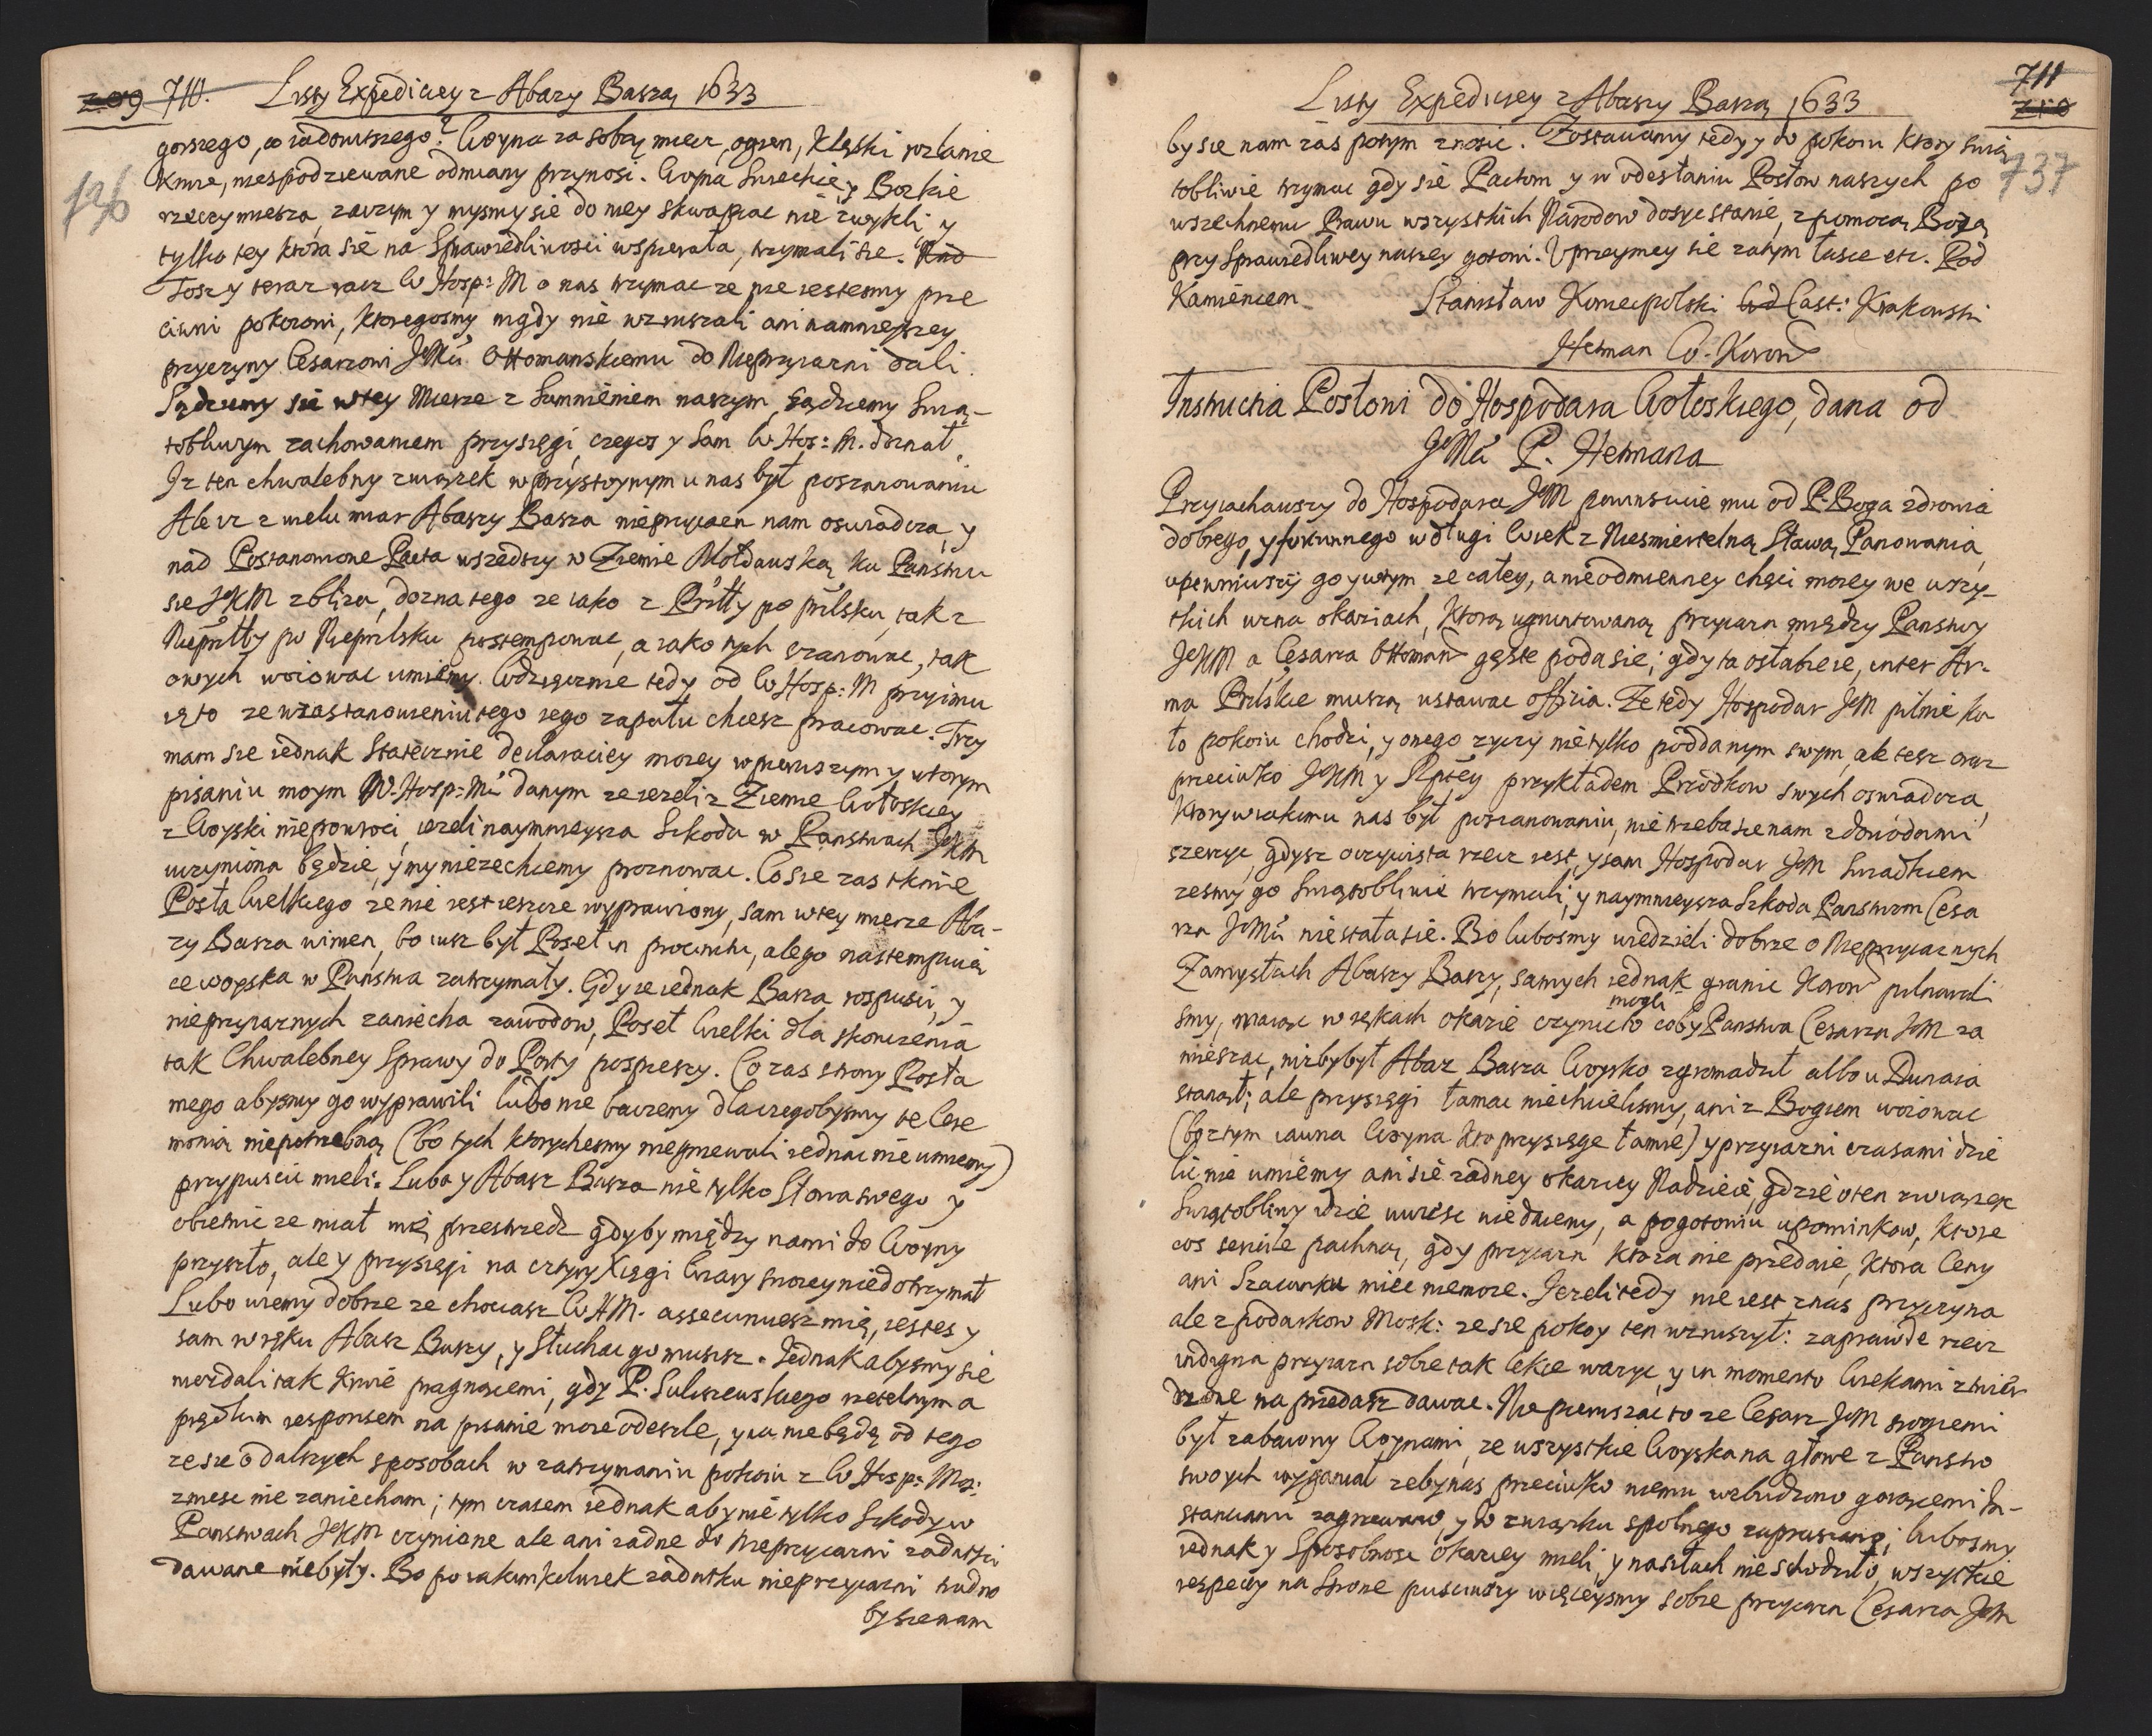 709 710. Listy Expediciey z Abazy Baszą 1633
736
gorszego, co iadowitszego? Woyna za sobą miecz, ogien, Klęski rozlanie
Krwie, niespodziewane odmiany przynosi. Woyna Swieckie y Bozkie
rzeczy miesza, zaczym y mysmy sie do niey skwapiac nie zwykli y
tylko tey ktora się na Sprawiedliwosci wspierała, trzymali sie.
Tosz y teraz racz W Hosp: M o nas trzymac ze nie iestesmy prze
ciwni pokoiowi, ktoregosmy nigdy nie wzruszali ani namnieyszey
przyczyny Cesarzowi JeMci Ottomanskiemu do Nieprzyiazni dali.
Sądziemy się w tey Mierze z Sumnieniem naszym, Sądziemy Swią-
tobliwym zachowaniem przysięgi, czegos y Sam W Hos: M. doznał.
Iz ten chwalebny związek w przystoynym u nas był poszanowaniu
Ale iz z wielu miar Abaszy Basza nieprzyiaźń nam oswiadcza, y
nad Postanowione Pacta wszedszy w Ziemie Mołdauską ku Panstwu
sie JKM zbliza, dozna tego ze iako z Priłły po prilsku, tak z
Nieprilły po Nieprilsku postempowac, a iako tych szanowac, tak
owych woiowac umiemy. Wdzięcznie tedy od W Hosp: M przyimu
ię to ze w zastanowieniu tego iego zapału chcesz pracowac. Trzy
mam sie iednak Statecznie declaraciey moiey w pierwszym y wtorym
pisaniu moym W. Hosp: Mci danym ze iezeli z Ziemie Wołoskiey
z Woyski nie powroci, iezeli naymnieysza Szkoda w Panstwach JKM
uczyniona będzie, y my niezechcemy proznowac. Co sie zas tknie
Posła Wielkiego ze nie iest ieszcze wyprawiony, sam w tey mierze Aba-
zy Basza winien, bo iusz był Poseł in procinctu, ale go nastempuią
ce woyska w Państwa zatrzymały. Gdy ie iednak Basza rospusci, y
nieprzyiaznych zaniecha zawodow, Poseł Wielki dla skonczenia
tak Chwalebney Sprawy do Porty pospieszy. Co zas strony Posła
mego abysmy go wyprawili lubo nie baczemy dla czegobysmy te Cere
monią niepotrzebną (bo tych ktorychesmy niegniewali iednac nie umiemy)
przypuscic mieli. Lubo y Abasz Basza nie tylko Słowa swego y
obietnic ze miał mię przestrzedz gdyby między nami do Woyny
przyszło, ale y przysięgi na cztyry Xięgi Wiary swoiey niedotrzymał
Lubo wiemy dobrze ze chociasz W HM. assecuruiesz mię, iestes y
sam w ręku Abasz Baszy, y Słuchac go musisz. Jednak abysmy sie
niezdali tak Krwie pragnącemi, gdy P. Suliszewskiego rzetelnym a
prędkim responsem na pisanie moie odeszle, y ia nie będę od tego
ze sie o dalszych sposobach w zatrzymaniu pokoiu z W Hosp: Mcią:
zniesc nie zaniecham; tym czasem iednak aby nie tylko Szkody w
Panstwach JKM czynione ale ani zadne do Nieprzyiazni zadatki
dawane niebyły. Bo po iakimkolwiek zadatku nieprzyiazni trudno
by sie nam

Listy Expediciey z Abaszy Baszą 1633
711
710
737
by sie nam zas potym znosic. Zostawamy tedy y do pokoiu ktory Swią
tobliwie trzymac gdy się Pactom y w odesłaniu Posłow naszych po
wszechnemu Prawu wszystkich Narodow dosyc stanie, z pomocą Bozą
przy Sprawiedliwey naszey gotowi. Uprzeymey sie zatym łasce etc. Pod
Kamiencem Stanisław Koniecpolski Cast: Krakowski
Hetman W. Koron
Instructia Posłowi do Hospodara Wołoskiego, dana od
JeMci P. Hetmana
Przyiachawszy do Hospodara JeM powinszuie mu od P. Boga zdrowia
dobrego, y fortunnego w długi Wiek z Niesmiertelną Sławą Panowania
upewniwszy go y w tym ze całey, a nieodmienney chęci moiey we wszy-
tkich uzna okaziach, ktorą ugruntowaną przyiazn między Panstwy
JeKM a Cesarza Ottoman gęste poda sie; gdy ta osłabieie, inter Ar-
ma Prilskie muszą ustawac officia. Ze tedy Hospodar JeM pilnie ko
ło pokoiu chodzi, y onego zyczy nie tylko poddanym swym, ale tesz oraz
przeciwko JeKM y Rptey przykładem Przodkow swych oswiadcza,
ktory w iakimu nas był poszanowaniu, nie trzeba sie nam z dowodami
szerzyc, gdysz oczywista rzecz iest, y sam Hospodar JeM Swiadkiem
zesmy go Swiątobliwie trzymali, y naymnieysza Szkoda Panstwom Cesa
rza JeMci niestała się. Bo lubosmy wiedzieli dobrze o Nieprzyiaznych
Zamysłach Abaszy Baszy, samych iednak granic Koron pilnowali
smy, maiąc w rękach okazie czynic to coby mogło Panstwa Cesarza JeM za
mieszac, nizby był Abaz Basza Woysko zgromadził albo u Dunaia
stanął; ale przysięgi łamac niechcielismy, ani z Bogiem woiowac
(bo z tym iawna Woyna kto przysięge łamie) y przyiazni czasami dzie
lic nie umiemy ani się zadney okaziey Nadzieie, gdzie o ten związek
Swiątobliwy idzie uwiesc nie damy, a pogotowiu upominkow, ktore
cos servile pachną, gdy przyiazn ktora nie przedaie, ktora Ceny
ani Szacunku miec niemoze. Jezeli tedy nie iest z nas przyczyna
ale z podarkow Mosk: ze sie pokoy ten wzruszył: zaprawde rzecz
indigna przyiazn sobie tak lekce wazyc, y in momento Wiekami ztwier
dzone na przedasz dawac. Nie pierwszac to ze Cesarz JeM srogiemi
był zabawiony Woynami, ze wszystkie Woyska na głowe z Panstw
swoych wyganiał zeby nas przeciwko niemu wzbudzono gorącemi In-
stanciami zagrzewano, y do związku spolnego zapraszano; lubosmy
iednak y Sposobnosc okaziey mieli, y na siłach nie schodziło, wszytkie
respecty na Strone pusciwszy więceysmy sobie przyiazn Cesarza JeM